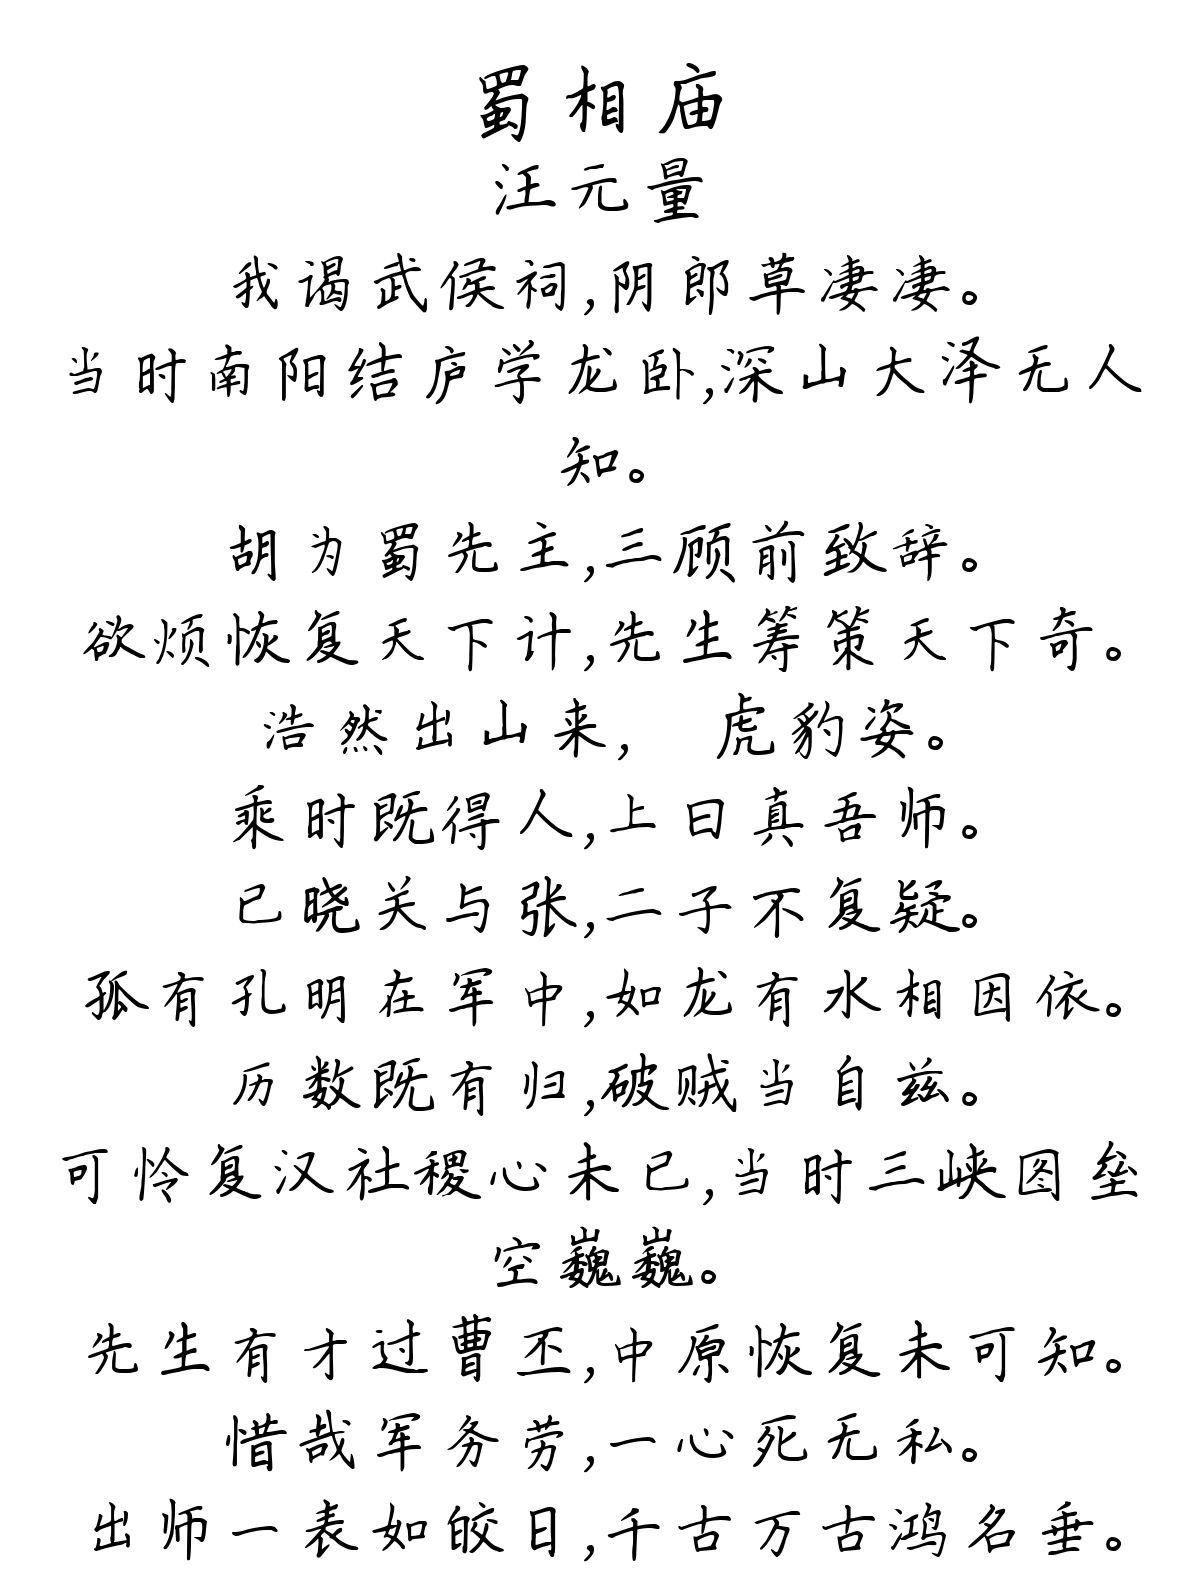 蜀相庙
汪元量
我谒武侯祠,阴郎草凄凄。
当时南阳结庐学龙卧,深山大泽无人
知。
胡为蜀先主,三顾前致辞。
欲烦恢复天下计,先生筹策天下奇。
浩然出山来, 虎豹姿。
乘时既得人,上曰真吾师。
已晓关与张,二子不复疑。
孤有孔明在军中,如龙有水相因依。
历数既有归,破贼当自兹。
可怜复汉社稷心未已,当时三峡图垒
空巍巍。
先生有才过曹丕,中原恢复未可知。
惜哉军务劳,一心死无私。
出师一表如皎日,千古万古鸿名垂。